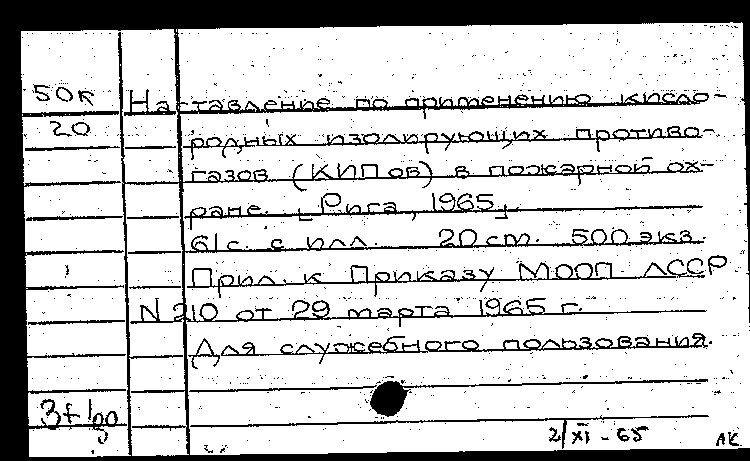 50к Наставление по применению кисло-
20 родных изолирующих противо-
газов (КИПов) в пожарной ох-
ране. [Рига, 1965]
61с. с илл. 20 cm. 500 экз.
Прил. к Приказу МООП ЛССР
N 210 от 29 марта 1965 г.
Для служебного пользования.
2/XI - 65 АК